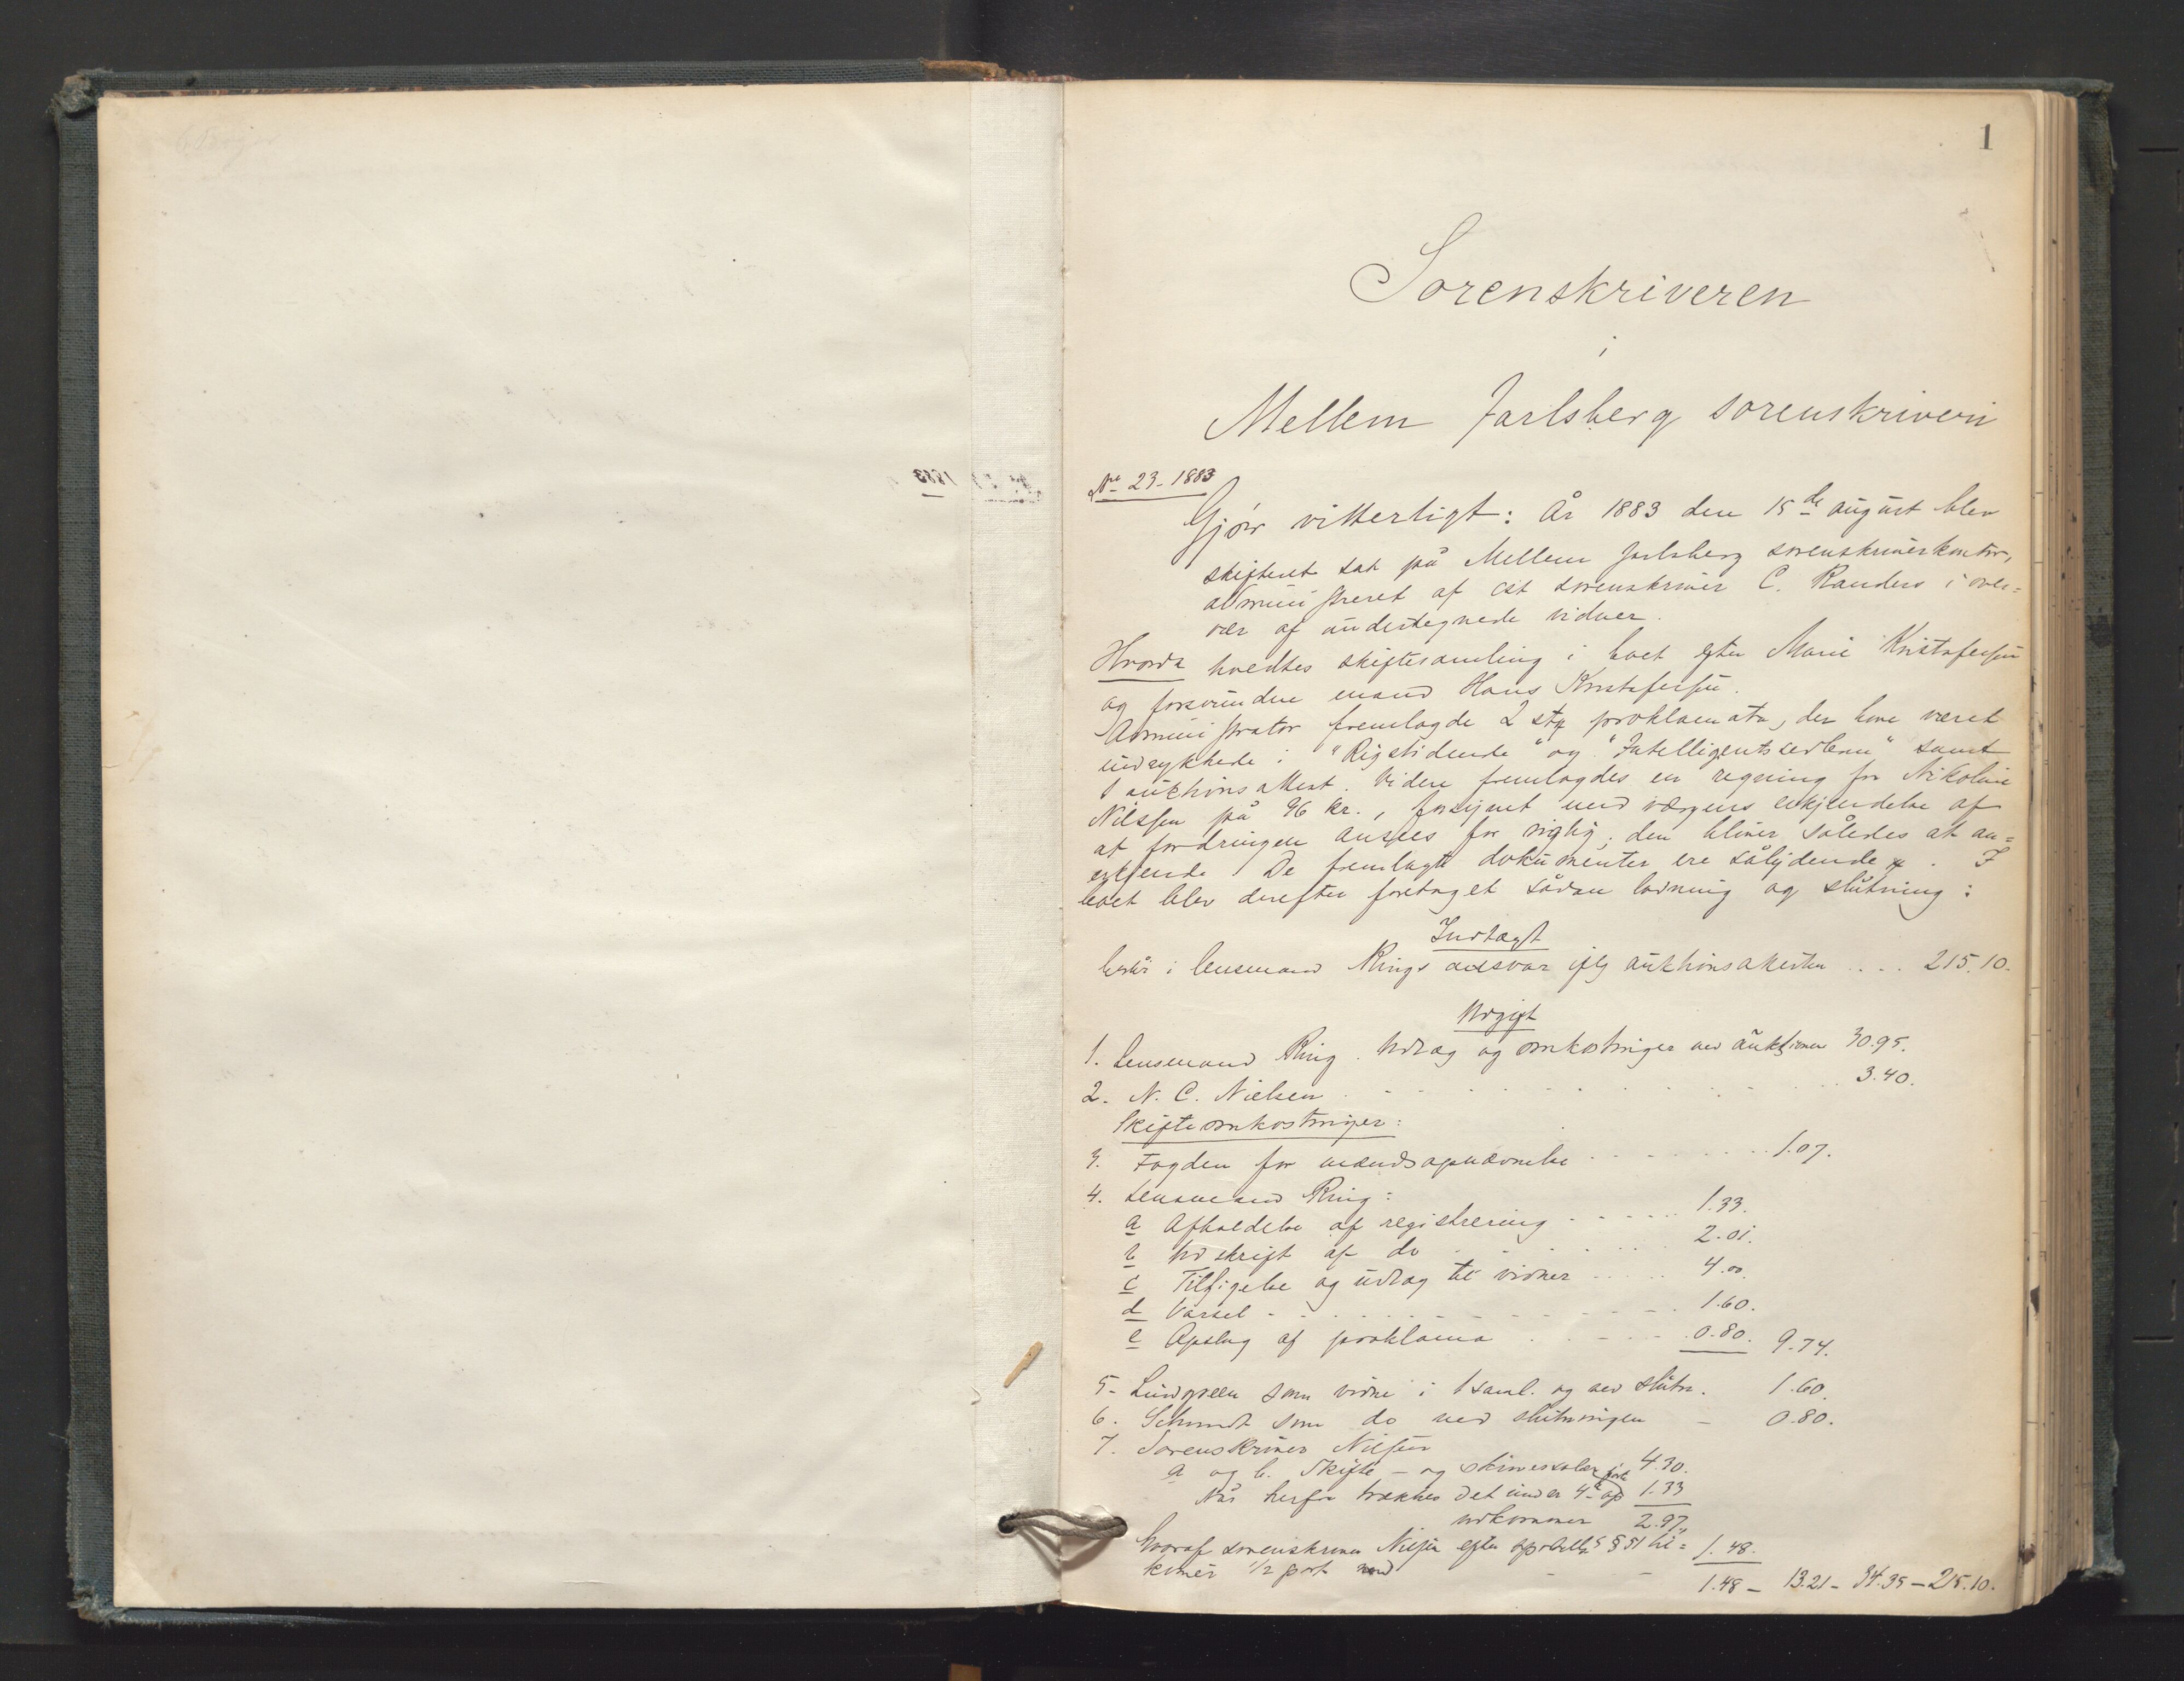 1
Sorenskriveren
i
Mellem Jarlsberg sorenskriveri
No 23-1883
Gjør vitterligt: År 1883 den 15de august blev
skifteret sat på Mellem Jarlsberg sorenskriverkontor,
administreret af cst sorenskriver C. Randers i over=
vær af undertegnede vidner.
Hvorda holdtes skiftesamling i boet efter Marie Kristofersen
og forsvundne mand Hans Kristofersen.
Administrator fremlagde 2 stk proklamata, der have været
indrykkede i "Rigstidende" og "Intelligentssedlerne" samt
1 auktionsattest. Videre fremlagdes en regning fra Nikoline
Nilssen på 96 kr., forsynet med værgens erkjendelse af
at fordringen ansees for rigtig; den bliver således at an=
erkjende. De fremlagte dokumenter ere sålydende . I
boet blev derefter foretaget sådan lodning og slutning:
Indtægt
består i lensmand Rings ansvar iflg auktionsakten .... 215.10.
Udgift
1. Lensmand Ring. Udlæg og omkostninger ved auktionen 30.95.
2. N. C. Nielsen 3.40.
Skifteomkostninger:
3. Fogden for mændsopnævnelse 1.07.
4. Lensmand Ring:
a Afholdelse af registrering 1.33.
b Udskrift af do 2.01.
c Tilsigelse og udlæg til vidner 4.00.
d Varsel 1.60.
e Opslag af proklama 0.80. 9.74.
5. Lindgreen som vidne i 1 saml. og ved slutn. 1.60.
6. Schmidt som do ved slutningen - 0.80.
7. Sorenskriver Nilsen
a og b. Skifte- og skriversalær 4.30.
Når herfra trækkes det under 4 a op 1.33
udkommer 2.97,
Hvoraf sorenskriver Nilsen efter § 51 til=
kommer 1/2 part med - - 1.48.
1.48 - 13.21 - 34.35 - 215.10.